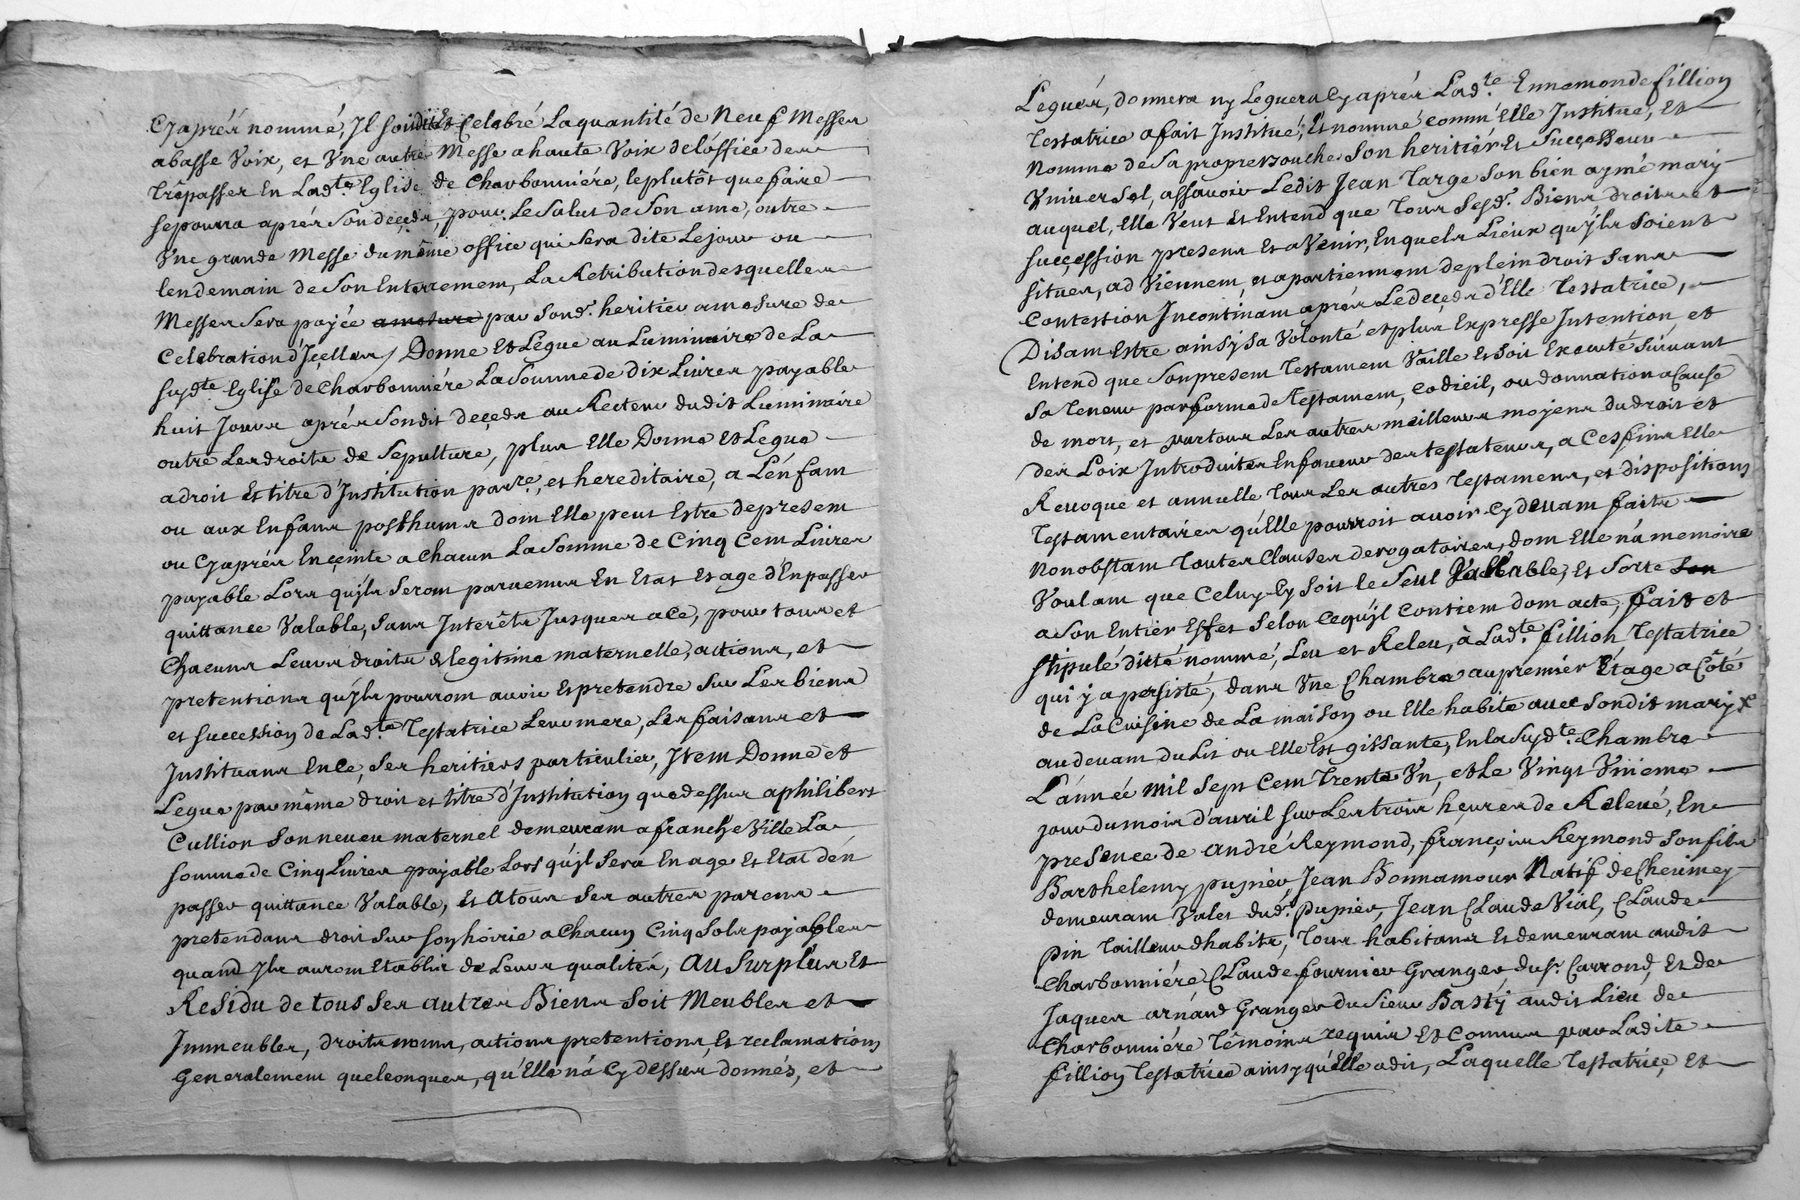 Cyaprés nommé, Il soit dit et Celebré Laquantité de Neuf Messes
abasse Voix, et Vne autre Messe ahaute Voix de l'office des
Trêpasses En Lad.te Eglise de Charbonniére, leplutôt que faire
sepourra aprés Son deçeds, pour Le Salut de Son ame, outre
Vne grande Messe du même office qui Sera dite Lejour ou
lendemain de Son Enterrement, La Retribution desquelles
Messes Sera payée amesure par Sond. heritier amesure de
Celebration d'Içelles / Donne Et Légue au Luminaire de La
susd.te Eglise de Charbonniére La Somme de dix Livres payable
huit Jours aprés Sondit deçeds au Recteur dudit Luminaire
outre Les droits de Sepulture, plus Elle Donne Et Legue
a droit Et titre d'Institution par.re, et hereditaire, a L'énfant
ou aux Enfans posthums dont Elle peut Estre de present
ou Cyaprés Ençeinte a Chacun La Somme de Cinq Cent Livres
payable Lors qu'jls Seront parvenus En Etat Et age d'En passer
quittance Valable, Sans Interêts Jusques a Ce, pour tous et
Chacuns Leurs droits de legitime maternelle, actions, et
pretentions qu'jls pourront avoir Et pretendre Sur Les biens
et succession de Lad.te Testatrice Leur mere, Les faisans et
Instituans En Ce, Ses heritiers particulier, Item Donne et
Legue par même droit et titre d'Institution que dessus a philibert
Cullion Son neveu maternel demeurant a franche Ville La
somme de Cinq Livres payable Lors qu'jl Sera En age Et Etat d'én
passer quittance Valable, Et a tous Ses autres parens
pretendans droit Sur Son hoirie a Chacun Cinq Sols payables
quand Jls auront Etablis de Leurs qualités, Au Surplus Et
Residu de tous Ses autres Biens Soit Meubles et
Immeubles, droits noms, actions pretentions, Et reclamations
Generalement quelconques, qu'Elle n'á Cy dessus donnés, et
Legués, donnera ny Leguera Cyaprés Lad.te Ennemonde fillion
Testatrice a fait Institué, Et nommé comm'Elle Institue, Et
Nomme de Sa propre bouche Son heritiér Et Successeur
Vniversel, assavoir Ledit Jean Targe Son bien aymé mary
auquel, Elle Veut Et Entend que Tous Sesd. Biens droits et
succession presens Et aVenir, En quels Lieux qu'jls Soient
situes, adViennent, et apartiennent de plein droit Sans
Contestion Incontinant aprés Le deçeds d'Elle Testatrice,
Disant Estre ainsy Sa Volonté et plus Expresse Intention et
Entend que Son present Testament Vaille Et Soit Executé Suivant
Sa Teneur par forme de Testament, codicil, ou donnation a Cause
de mort, et par tous Les autres meilleurs moyens du droit et
des Loix Introduites En faveur des testateurs, a Ces fins Elle
Revoque et annulle Tous Les autres Testamens, et dispositions
Testamentaires qu'Elle pourroit avoir Cy devant faits
Nonobstant Toutes Clauses derogatoires, dont Elle n'á memoire
Voulant que Celuy Cy Soit le Seul Vallable, Et Sorte Son
a Son Entier Effet Selon Ce qu'jl Contient dont acte, fait et
Stipulé dicté nommé, Leu et Releu, à Lad.te fillion Testatrice
qui y a persisté, dans Vne Chambre au premiér Étage a Côté
de La Cuisine de La maison ou Elle habite avec Sondit mary x
au devant du Lit ou Elle Est gissante, En la Susd.te Chambre
L'année Mil Sept Cent Trente Vn, et Le Vingt Vniéme
jour du mois d'avril Sur Les trois heures de Relevé, En
presence de andré Reymond, françois Reymond Son fils
Barthelemy pupiér, Jean Bonnamour Natif de Chevinay
demeurant Valet dud. Pupier, Jean Claude Vial, Claude
Pin Tailleur d'habits, Tous habitans Et demeurant audit
Charbonniére Claude fournier Granger du Sr. Carrond, Et de
Jaques arnaud Granger du Sieur Basty audit Lieu de
Charbonniére Témoins requis Et Connus par Ladite
fillion Testatrice ainsy qu'Elle a dit, Laquelle Testatrice, Et